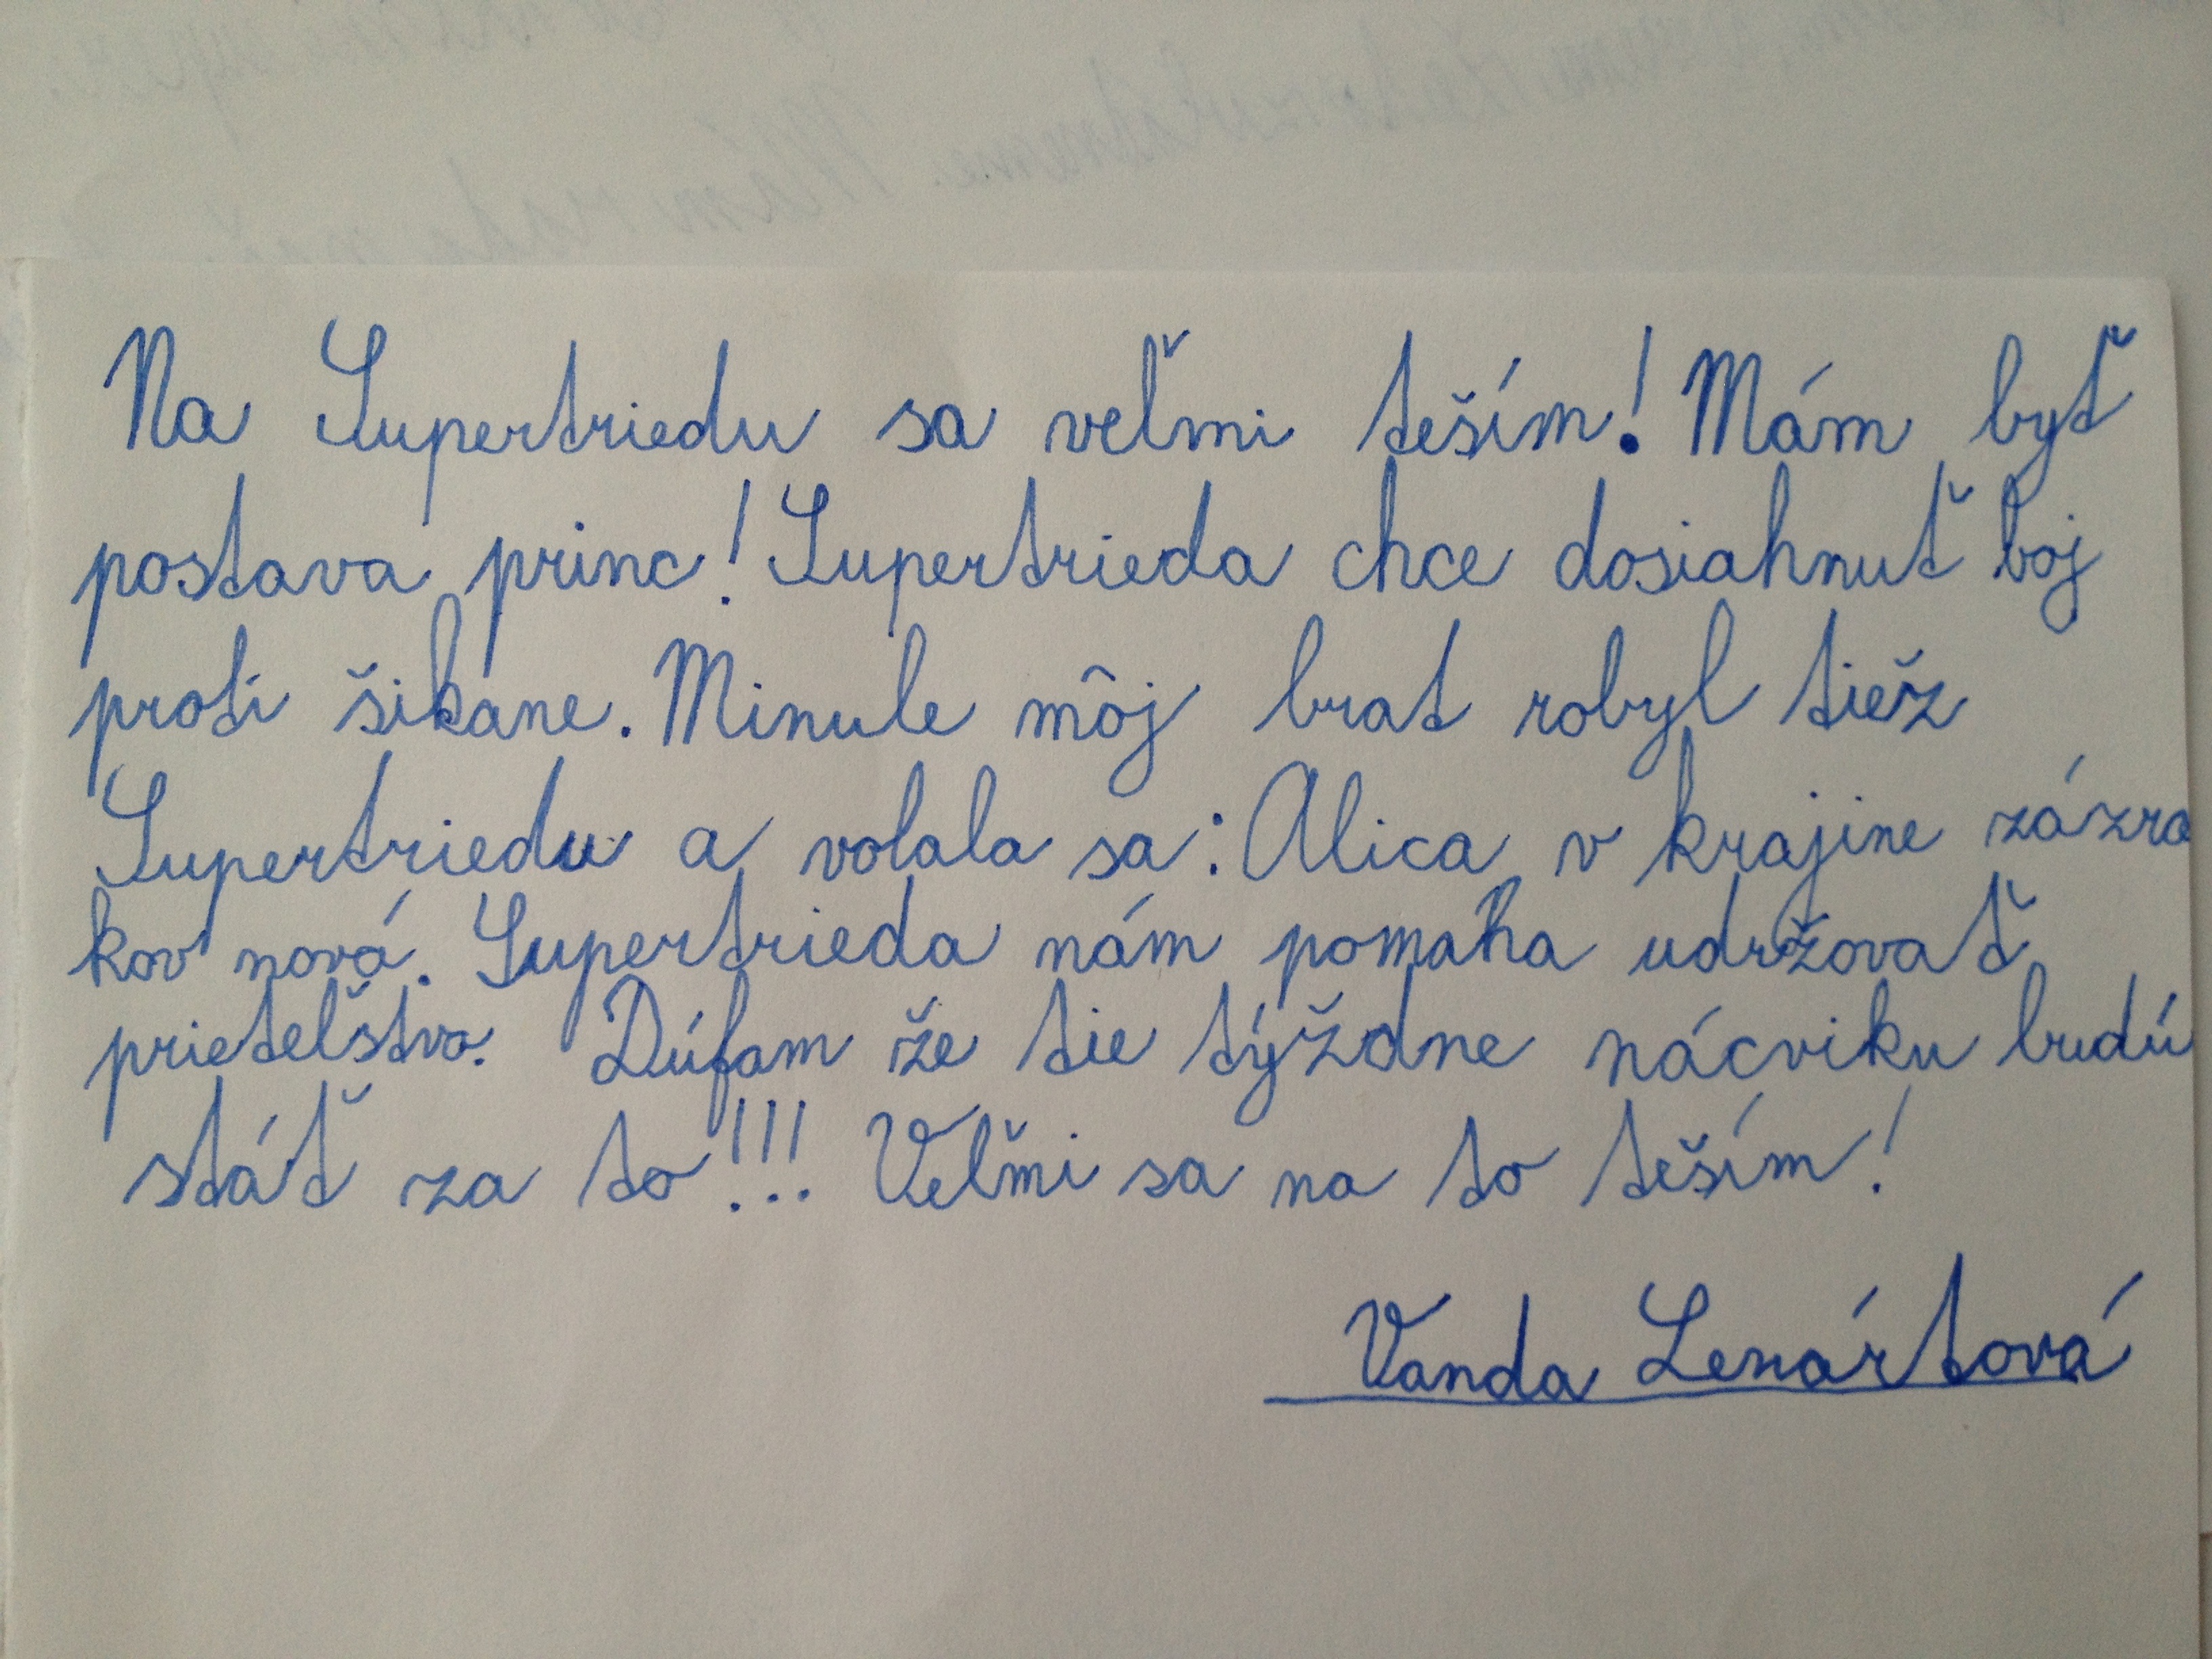 Na Supertriedu sa veľmi teším! Mám byť
postava princ! Supertrieda chce dosiahnuť boj
proti šikane. Minule môj brat robyl tiež
Supertriedu a volala sa: Alica v krajine zázra
kov nová. Supertrieda nám pomaha udržovať
prietelštvo. Dúfam že tie týždne nácviku budú
stáť za to!!! Veľmi sa na to teším!
Vanda Lenártová